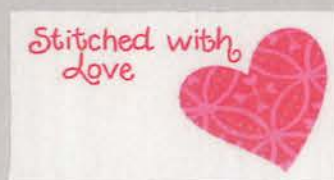 Stitched with
Love